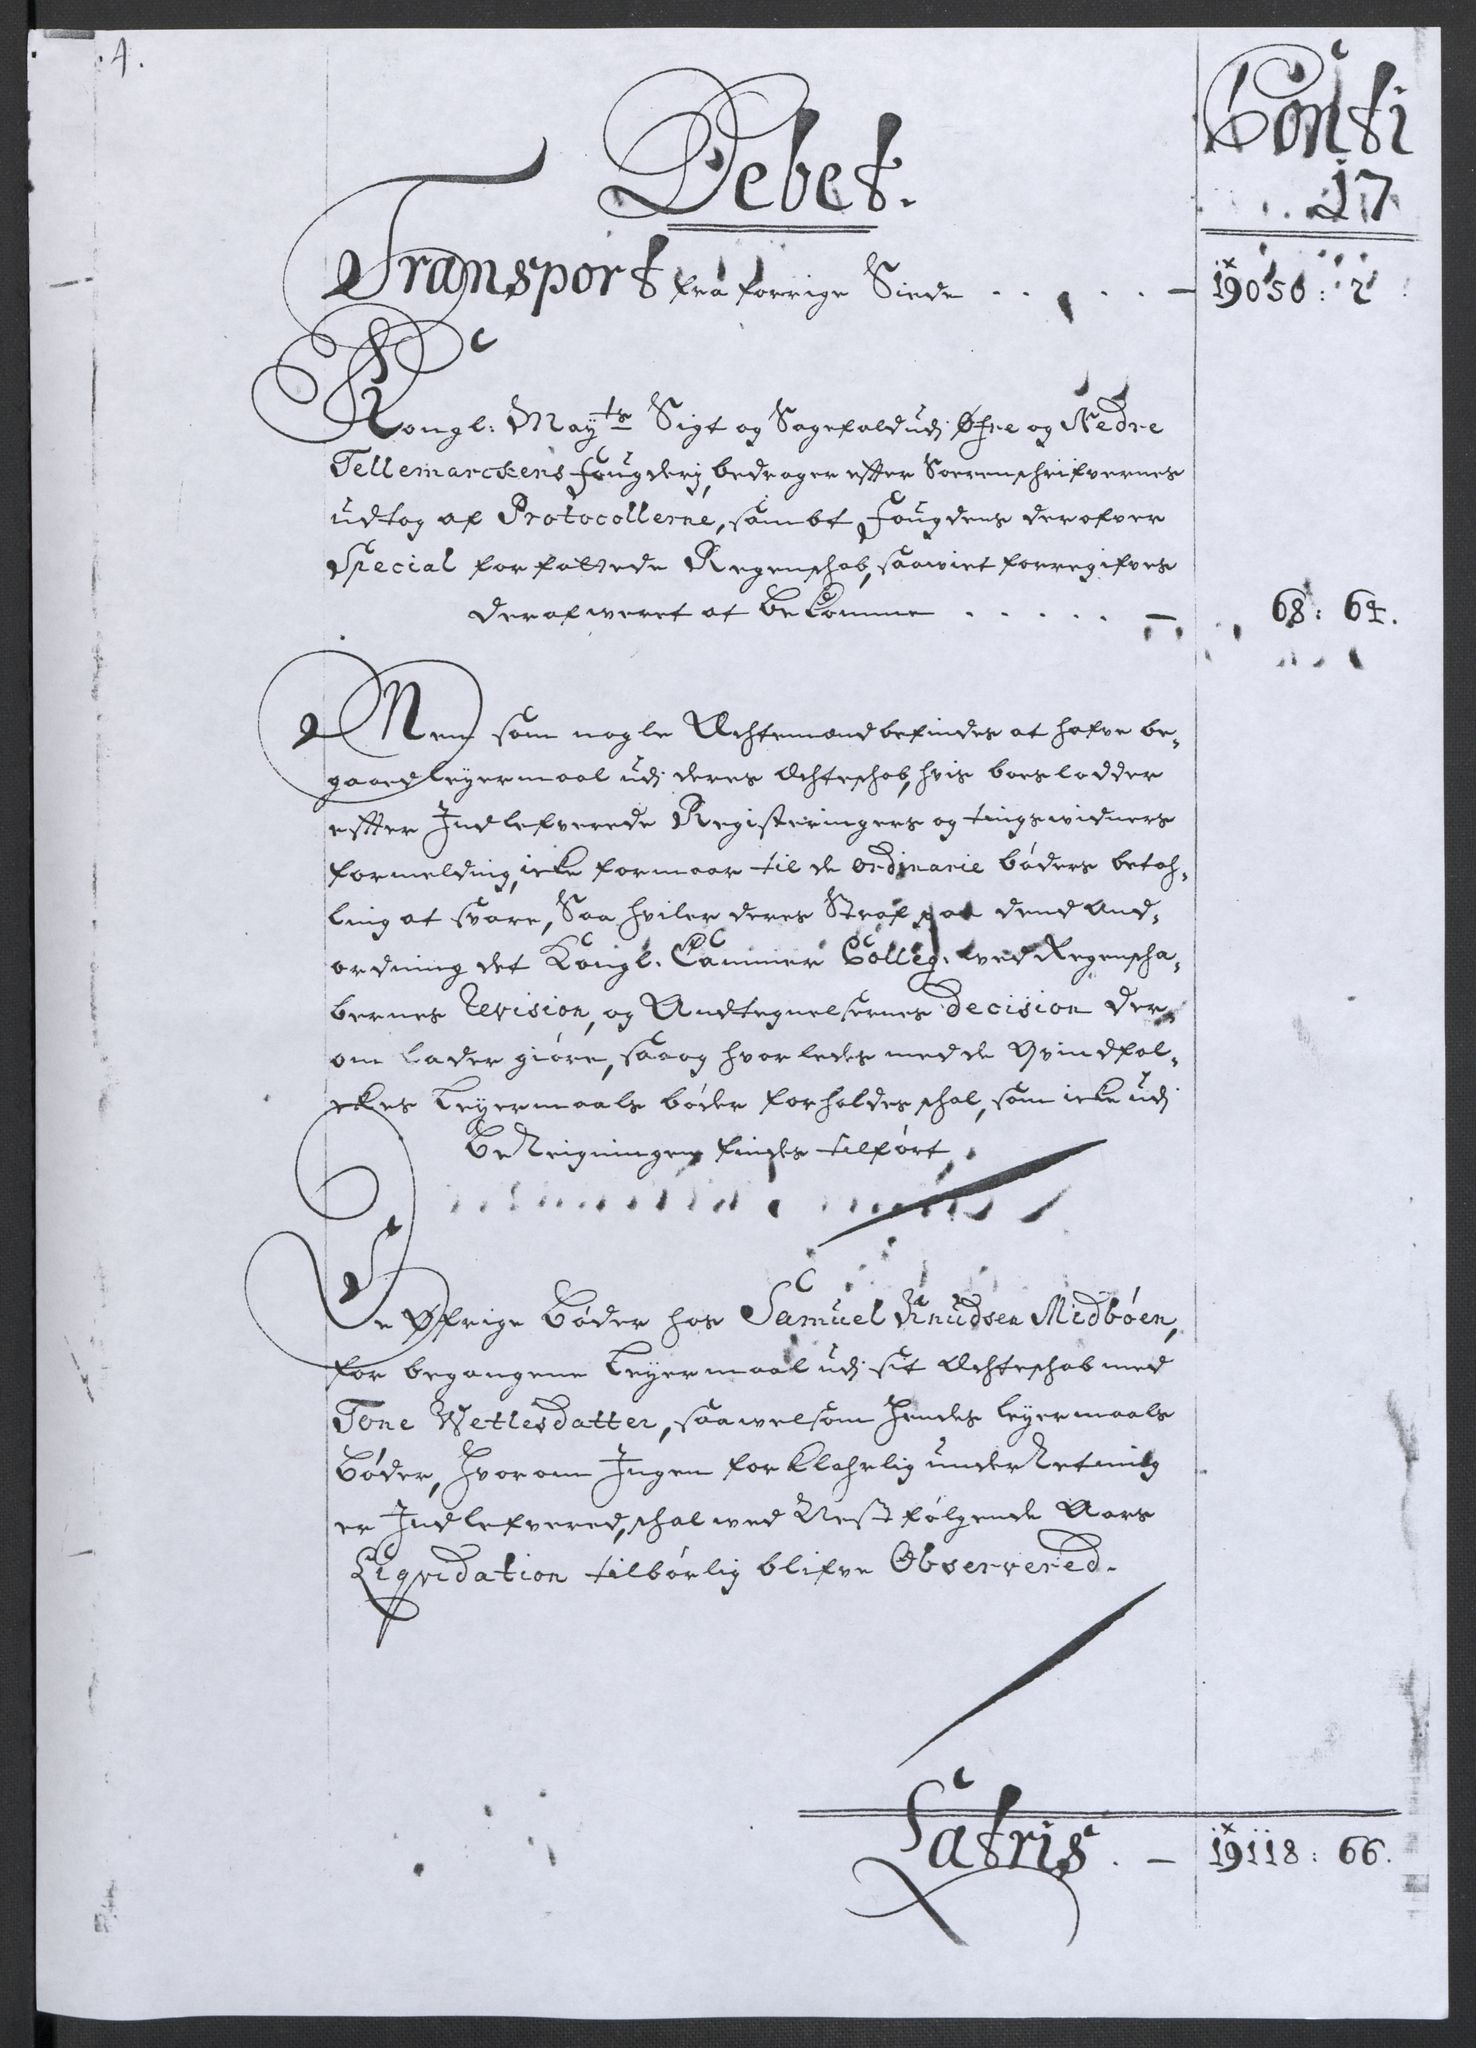 4.
Debet.
Conti
17
Transport fra forrige Siede . . . . . — 19050 : 2
Kongl: Mayts Sigt og Sagefald udj Øfre og Nedre
Tellemarckens fougderj, bedrager efter Sorenschrifvernes
udtog af Protocollerne, sambt fougdens derofver
Special forfattede Regenschab, saawiet forregifves
deraf weret at bekomme . . . . . — 68 : 64.
Men som nogle Ægtemænd befindes at hafve be-
gaaed leyermaal udj deres Ægteschab, hvis boeslodder
efter Indlefverede Registeringers og tingswidners
formelding, icke formaar til de ordinarie bøders betah-
ling at svare, Saa hviler deres Straf paa dend And-
ordning det Kongl. Cammer Colleg. ved Regenscha-
bernes Revision, og Andtegnelsernes decision der-
om lader giøre, saaog hvorledes med de Qvindfol-
ckes leyermaals bøder forholdes schal, som icke udj
beReigningen findes tilført.
De Øfrige bøder hos Samuel Knudsen Midbøen,
for begangene leyermaal udj sit Ægteschab med
Tone Wetlesdatter, saawelsom hendes leyermaals
bøder, hvorom Ingen forklahrlig underRetning
er Indlefvered, schal wed Nest følgende Aars
Liqvidation tilbørlig blifve Observered.
Latris . — 19118 : 66.